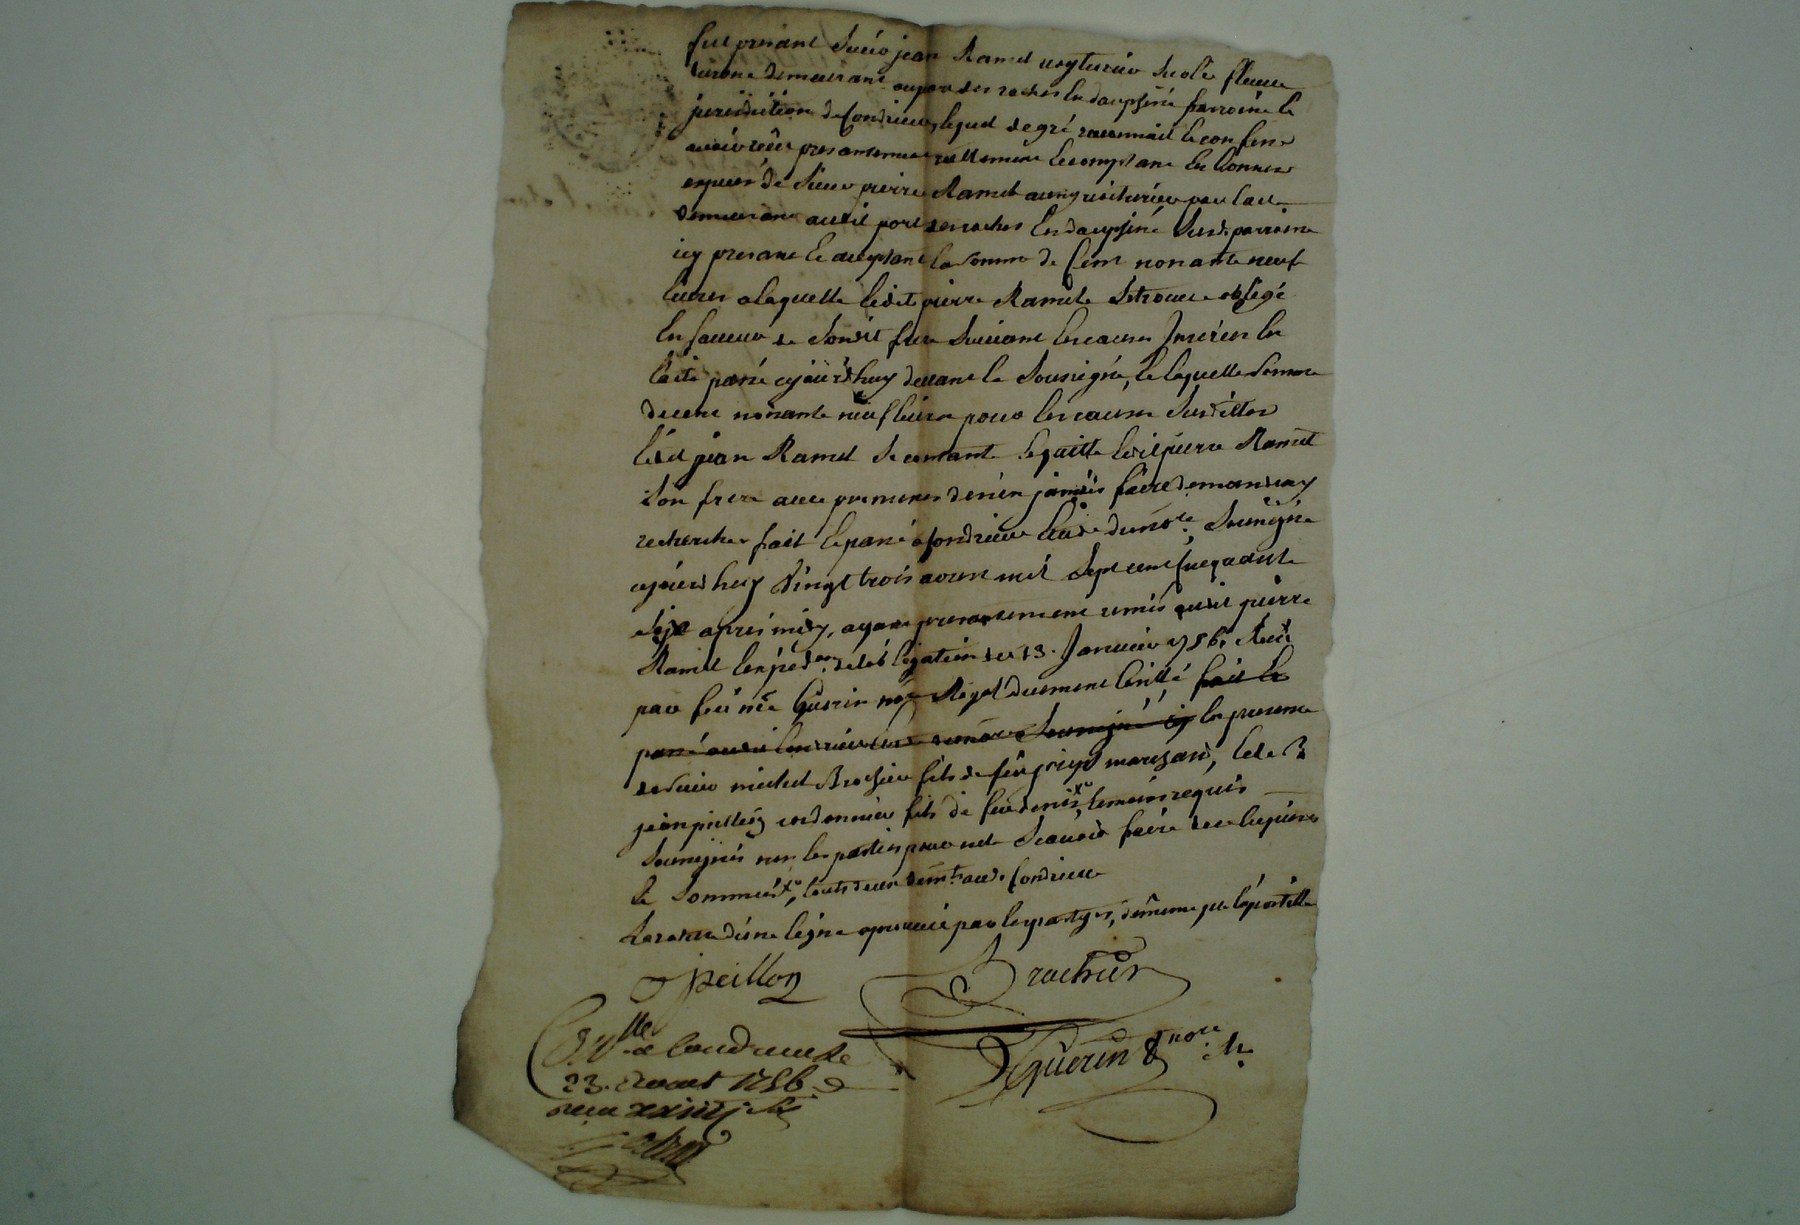 fut present Sieur jean Ramel voyturier sur le fleuve
demeurant au port des roches en dauphiné parroisse &
juridiction de Condrieu, lequel de gré reconnait & confesse
avoir reçu presentement reellement & comptant en bonnes
especes de Sieur pierre Ramel aussy voiturier par eau
demeurant audit port des roches en dauphiné susd. parroisse
icy present & acceptant la somme de Cent nonante neuf
livres a laquelle ledit pierre Ramel se trouve obligé
en faveur de sondit frere suivant les causes Inserées en
l'acte passé cejourd'huy devant le Soussigné, de laquelle somme
de cent nonante neuf livres pour les causes susdittes
ledit jean Ramel se contante & quitte ledit pierre Ramel
son frere avec promesses de n'en jamais faire demande ny
recherche fait & passé a Condrieu etude du no.re Soussigné
cejourd'huy vingt trois aoust mil sept cent cinquante
six apres midy, ayant presentement remis audit pierre
Ramel l'exped.on de l'obligation du 13. Janvier 1756. Receu
par feu me Guerin no.re Royal duement quitté fait &
passé audit Condrieu etude du no.re Soussigné en presence
de Sieur michel Brochier fils de feu marchand, & de S.r
jean peillon cordonnier fils de feu denis, temoins requis
Soussignés non les parties pour ne le Scavoir faire de ce enquises
& sommées, touts deux dem.ts aud. Condrieu
La rature d'une ligne aprouvée par les partyes, de meme que l'apostille
Jpeillon
Brochier
C.lle a Condrieu le
23. Aoust 1756
Guerin no.re R.
receu xxiiij s.